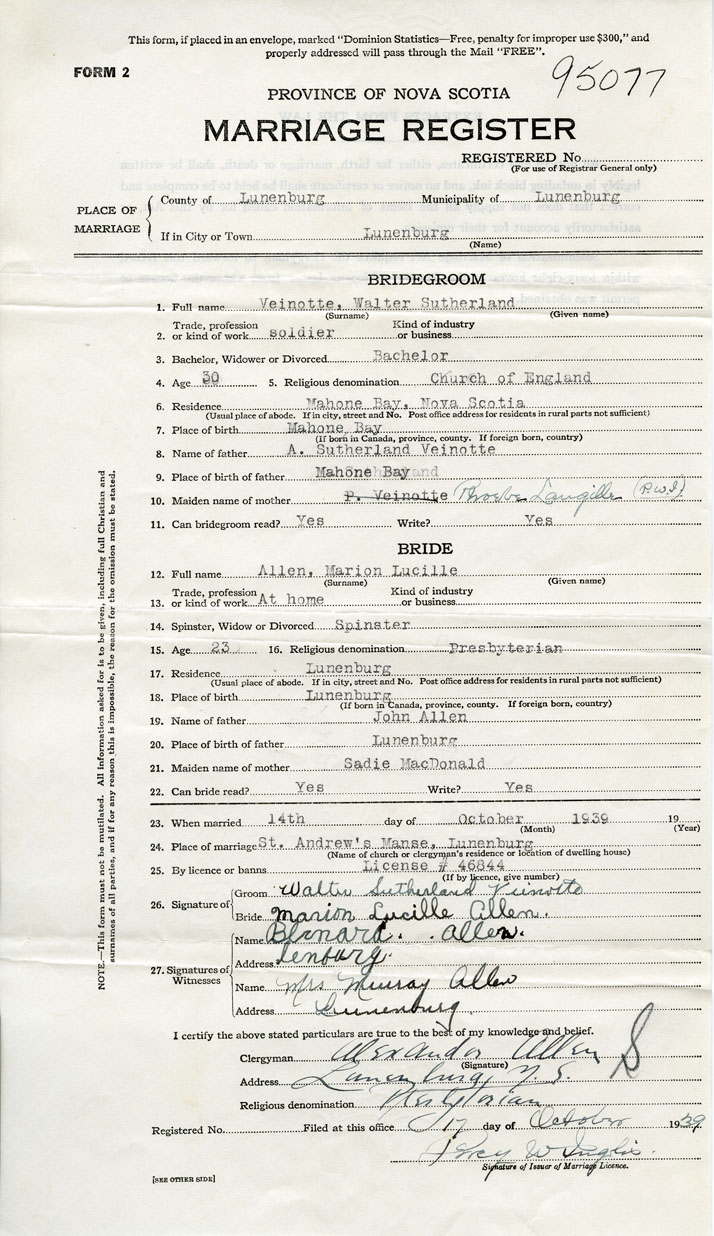 This form, if placed in an envelope, marked "Dominion Statistics—Free, penalty for improper use $300," and
properly addressed will pass through the Mail "FREE".
FORM 2
95077
PROVINCE OF NOVA SCOTIA
MARRIAGE REGISTER
REGISTERED No.
(For use of Registrar General only)
PLACE OF MARRIAGE
County of Lunenburg Municipality of Lunenburg
If in City or Town Lunenburg
(Name)
BRIDEGROOM
1. Full name Veinotte, Walter Sutherland
(Surname) (Given name)
2. Trade, profession or kind of work soldier Kind of industry or business
3. Bachelor, Widower or Divorced Bachelor
4. Age 30 5. Religious denomination Church of England
6. Residence Mahone Bay, Nova Scotia
(Usual place of abode. If in city, street and No. Post office address for residents in rural parts not sufficient)
7. Place of birth Mahone Bay
(If born in Canada, province, county. If foreign born, country)
8. Name of father A. Sutherland Veinotte
9. Place of birth of father Mahone Bay
10. Maiden name of mother P. Veinotte Phoebe Langille (P.W.I)
11. Can bridegroom read? Yes Write? Yes
BRIDE
12. Full name Allen, Marion Lucille
(Surname) (Given name)
13. Trade, profession or kind of work At home Kind of industry or business
14. Spinster, Widow or Divorced Spinster
15. Age 23 16. Religious denomination Presbyterian
17. Residence Lunenburg
(Usual place of abode. If in city, street and No. Post office address for residents in rural parts not sufficient)
18. Place of birth Lunenburg
(If born in Canada, province, county. If foreign born, country)
19. Name of father John Allen
20. Place of birth of father Lunenburg
21. Maiden name of mother Sadie MacDonald
22. Can bride read? Yes Write? Yes
23. When married 14th day of October 1939 19
(Month) (Year)
24. Place of marriage St. Andrew's Manse, Lunenburg
(Name of church or clergyman's residence or location of dwelling house)
25. By licence or banns License # 46844
(If by licence, give number)
26. Signature of
Groom Walter Sutherland Veinotte
Bride Marion Lucille Allen.
27. Signatures of Witnesses
Name Bernard. Allen.
Address Lenburg.
Name Mrs Murray Allen
Address Lunenburg.
I certify the above stated particulars are true to the best of my knowledge and belief.
Clergyman Alexander Allen S
(Signature)
Address Lunenburg, N.S.
Religious denomination Presbyterian
Registered No. Filed at this office 17 day of October 1939
Percy W Inglis.
Signature of Issuer of Marriage Licence.
[SEE OTHER SIDE]
NOTE.—This form must not be mutilated. All information asked for is to be given, including full Christian and
surnames of all parties, and if for any reason this is impossible, the reason for the omission must be stated.